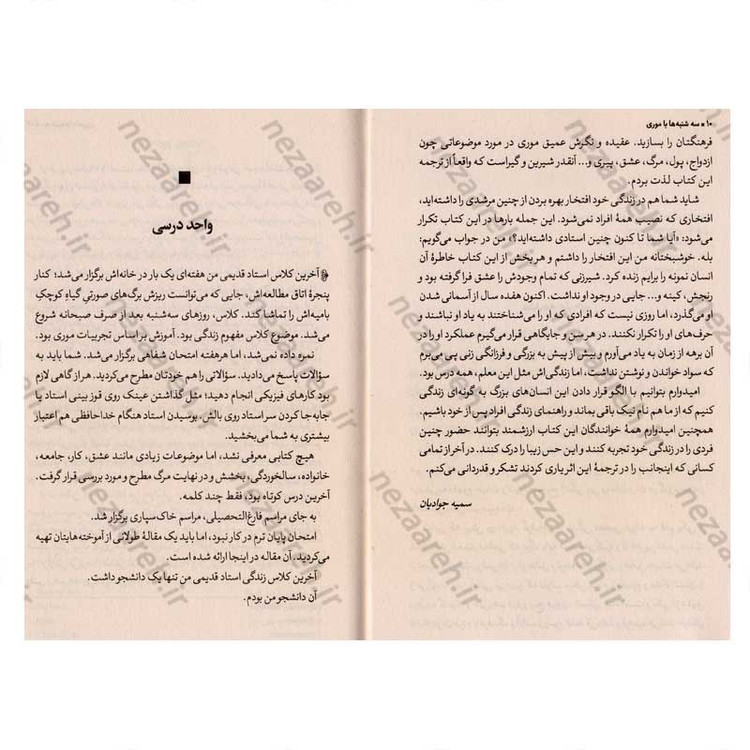 ۱۰ ▪ سه شنبه‌ها با موری
فرهنگتان را بسازید. عقیده و نگرش عمیق موری در مورد موضوعاتی چون
ازدواج، پول، مرگ، عشق، پیری و... آنقدر شیرین و گیراست که واقعاً از ترجمه
این کتاب لذت بردم.
شاید شما هم در زندگی خود افتخار بهره بردن از چنین مرشدی را داشته‌اید،
افتخاری که نصیب همهٔ افراد نمی‌شود. این جمله بارها در این کتاب تکرار
می‌شود: «آیا شما تا کنون چنین استادی داشته‌اید؟» من در جواب می‌گویم:
بله. خوشبختانه من این افتخار را داشتم و هر بخش از این کتاب خاطرهٔ آن
انسان نمونه را برایم زنده کرد. شیرزنی که تمام وجودش را عشق فرا گرفته بود و
رنجش، کینه و... جایی در وجود او نداشت. اکنون هفده سال از آسمانی شدن
او می‌گذرد، اما روزی نیست که افرادی که او را می‌شناختند به یاد او نباشند و
حرف‌های او را تکرار نکنند. در هر سن و جایگاهی قرار می‌گیرم عملکرد او را در
آن برهه از زمان به یاد می‌آورم و بیش از پیش به بزرگی و فرزانگی زنی پی می‌برم
که سواد خواندن و نوشتن نداشت، اما زندگی‌اش مثل این معلم، همه درس بود.
امیدوارم بتوانیم با الگو قرار دادن این انسان‌های بزرگ به گونه‌ای زندگی
کنیم که از ما هم نام نیک باقی بماند و راهنمای زندگی افراد پس از خود باشیم.
همچنین امیدوارم همهٔ خوانندگان این کتاب ارزشمند بتوانند حضور چنین
فردی را در زندگی خود تجربه کنند و این حس زیبا را درک کنند. در آخر از تمامی
کسانی که اینجانب را در ترجمهٔ این اثر یاری کردند تشکر و قدردانی می‌کنم.
سمیه جوادیان
واحد درسی
آخرین کلاس استاد قدیمی من هفته‌ای یک بار در خانه‌اش برگزار می‌شد؛ کنار
پنجرهٔ اتاق مطالعه‌اش، جایی که می‌توانست ریزش برگ‌های صورتی گیاه کوچک
بامیه‌اش را تماشا کند. کلاس، روزهای سه‌شنبه بعد از صرف صبحانه شروع
می‌شد. موضوع کلاس مفهوم زندگی بود. آموزش بر اساس تجربیات موری بود.
نمره داده نمی‌شد، اما هر هفته امتحان شفاهی برگزار می‌شد. شما باید به
سؤالات پاسخ می‌دادید. سؤالاتی را هم خودتان مطرح می‌کردید. هر از گاهی لازم
بود کارهای فیزیکی انجام دهید؛ مثل گذاشتن عینک روی قوز بینی استاد یا
جابه‌جا کردن سر استاد روی بالش. بوسیدن استاد هنگام خداحافظی هم اعتبار
بیشتری به شما می‌بخشید.
هیچ کتابی معرفی نشد، اما موضوعات زیادی مانند عشق، کار، جامعه،
خانواده، سالخوردگی، بخشش و در نهایت مرگ مطرح و مورد بررسی قرار گرفت.
آخرین درس کوتاه بود، فقط چند کلمه.
به جای مراسم فارغ‌التحصیلی، مراسم خاک‌سپاری برگزار شد.
امتحان پایان ترم در کار نبود، اما باید یک مقالهٔ طولانی از آموخته‌هایتان تهیه
می‌کردید. آن مقاله در اینجا ارائه شده است.
آخرین کلاس زندگی استاد قدیمی من تنها یک دانشجو داشت.
آن دانشجو من بودم.
nezaareh.ir